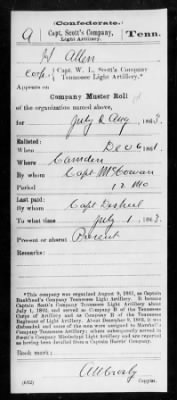 (Confederate.)
A | Capt. Scott's Company, Light Artillery. | Tenn.
H Allen
Corp., Capt. W. L. Scott's Company
Tennessee Light Artillery.*
Appears on
Company Muster Roll
of the organization named above,
for July & Aug, 1863.
Enlisted:
When Dec 6, 1861.
Where Camden
By whom Capt McCowan
Period 12 mo
Last paid:
By whom Capt
To what time July 1, 1863.
Present or absent Present
Remarks:
*This company was organized August 9, 1861, as Captain
Bankhead's Company Tennessee Light Artillery. It became
Captain Scott's Company Tennessee Light Artillery about
July 1, 1862, and served as Company B of the Corps of
Artillery and as Company D of the Tennessee
Regiment of Light Artillery. About December 9, 1863, it was
disbanded and some of the men were assigned to Marshall's
Company Tennessee Artillery; others subsequently served in
Swett's Company Mississippi Light Artillery and are reported
as having been detailed from Captain Scotts' Company.
Book mark:
(642)
Copyist.